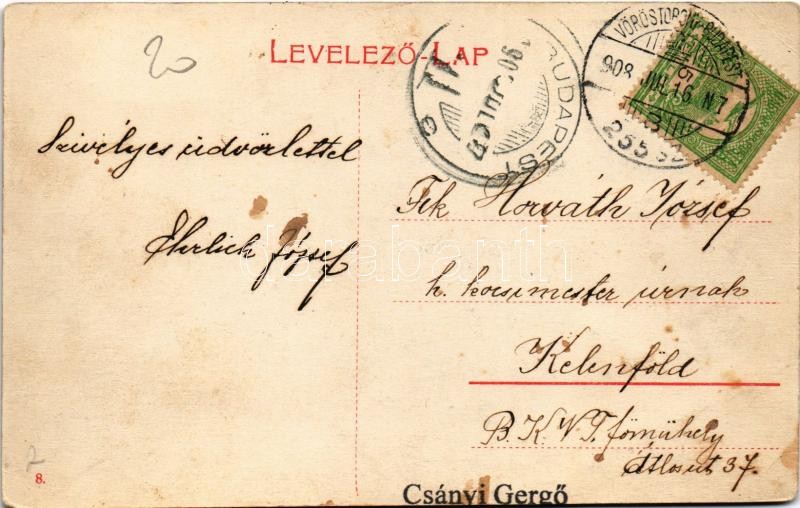 20
LEVELEZŐ-LAP
BUDAPEST
VÖRÖSTORONY-BUDAPEST
908 JUL. 16. N7
255 SZ.
Szivélyes üdvözlettel
Ehrlich József
Tek Horváth József
h. kocsimester úrnak
Kelenföld
B. K. V. T. főműhely
Átlós út 37.
8.
Csányi Gergő
darabanth